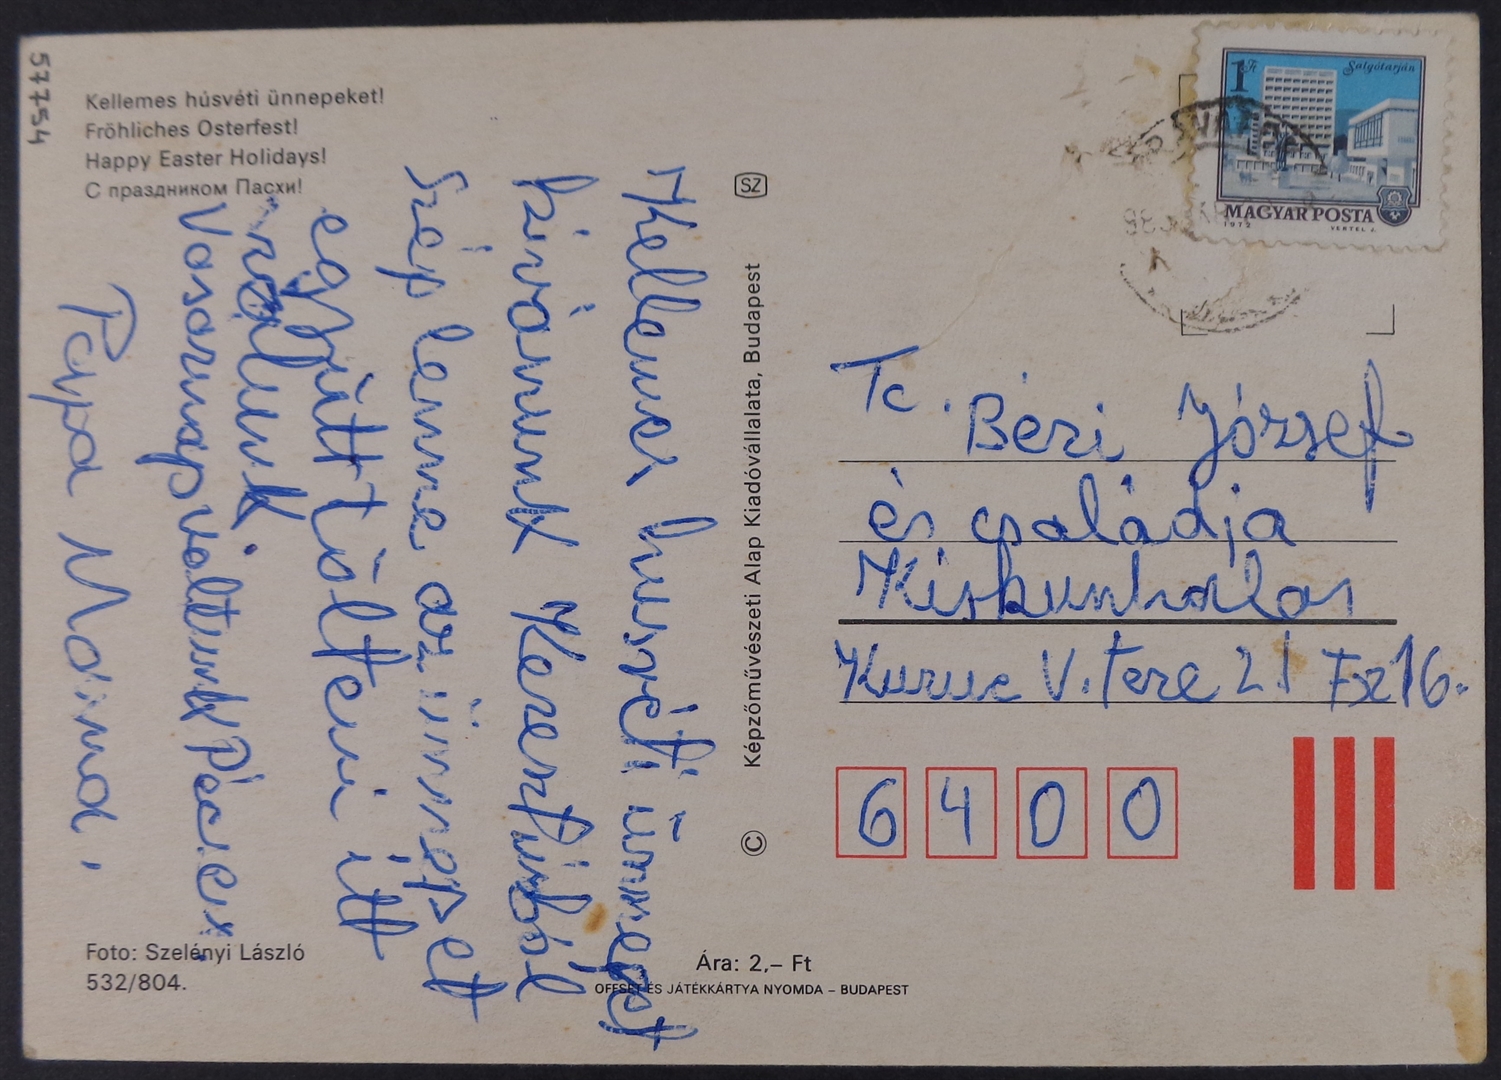 57754
Kellemes húsvéti ünnepeket!
Fröhliches Osterfest!
Happy Easter Holidays!
С праздником Пасхи!
Kellemes husvéti ünnepet
kivánunk Keresztúrból
Szép lenne az ünnepet
együtt tölteni itt
nálunk.
Vasarnap voltunk Pécsen.
Papa Mama,
Foto: Szelényi László
532/804.
SZ
© Képzőművészeti Alap Kiadóvállalata, Budapest
Ára: 2,– Ft
OFFSET ÉS JÁTÉKKÁRTYA NYOMDA – BUDAPEST
1 Ft
Salgótarján
MAGYAR POSTA
1972
VERTEL J.
Tc. Béri József
és családja
Kiskunhalas
Kuruc V. tere 21 Fsz 16.
6400